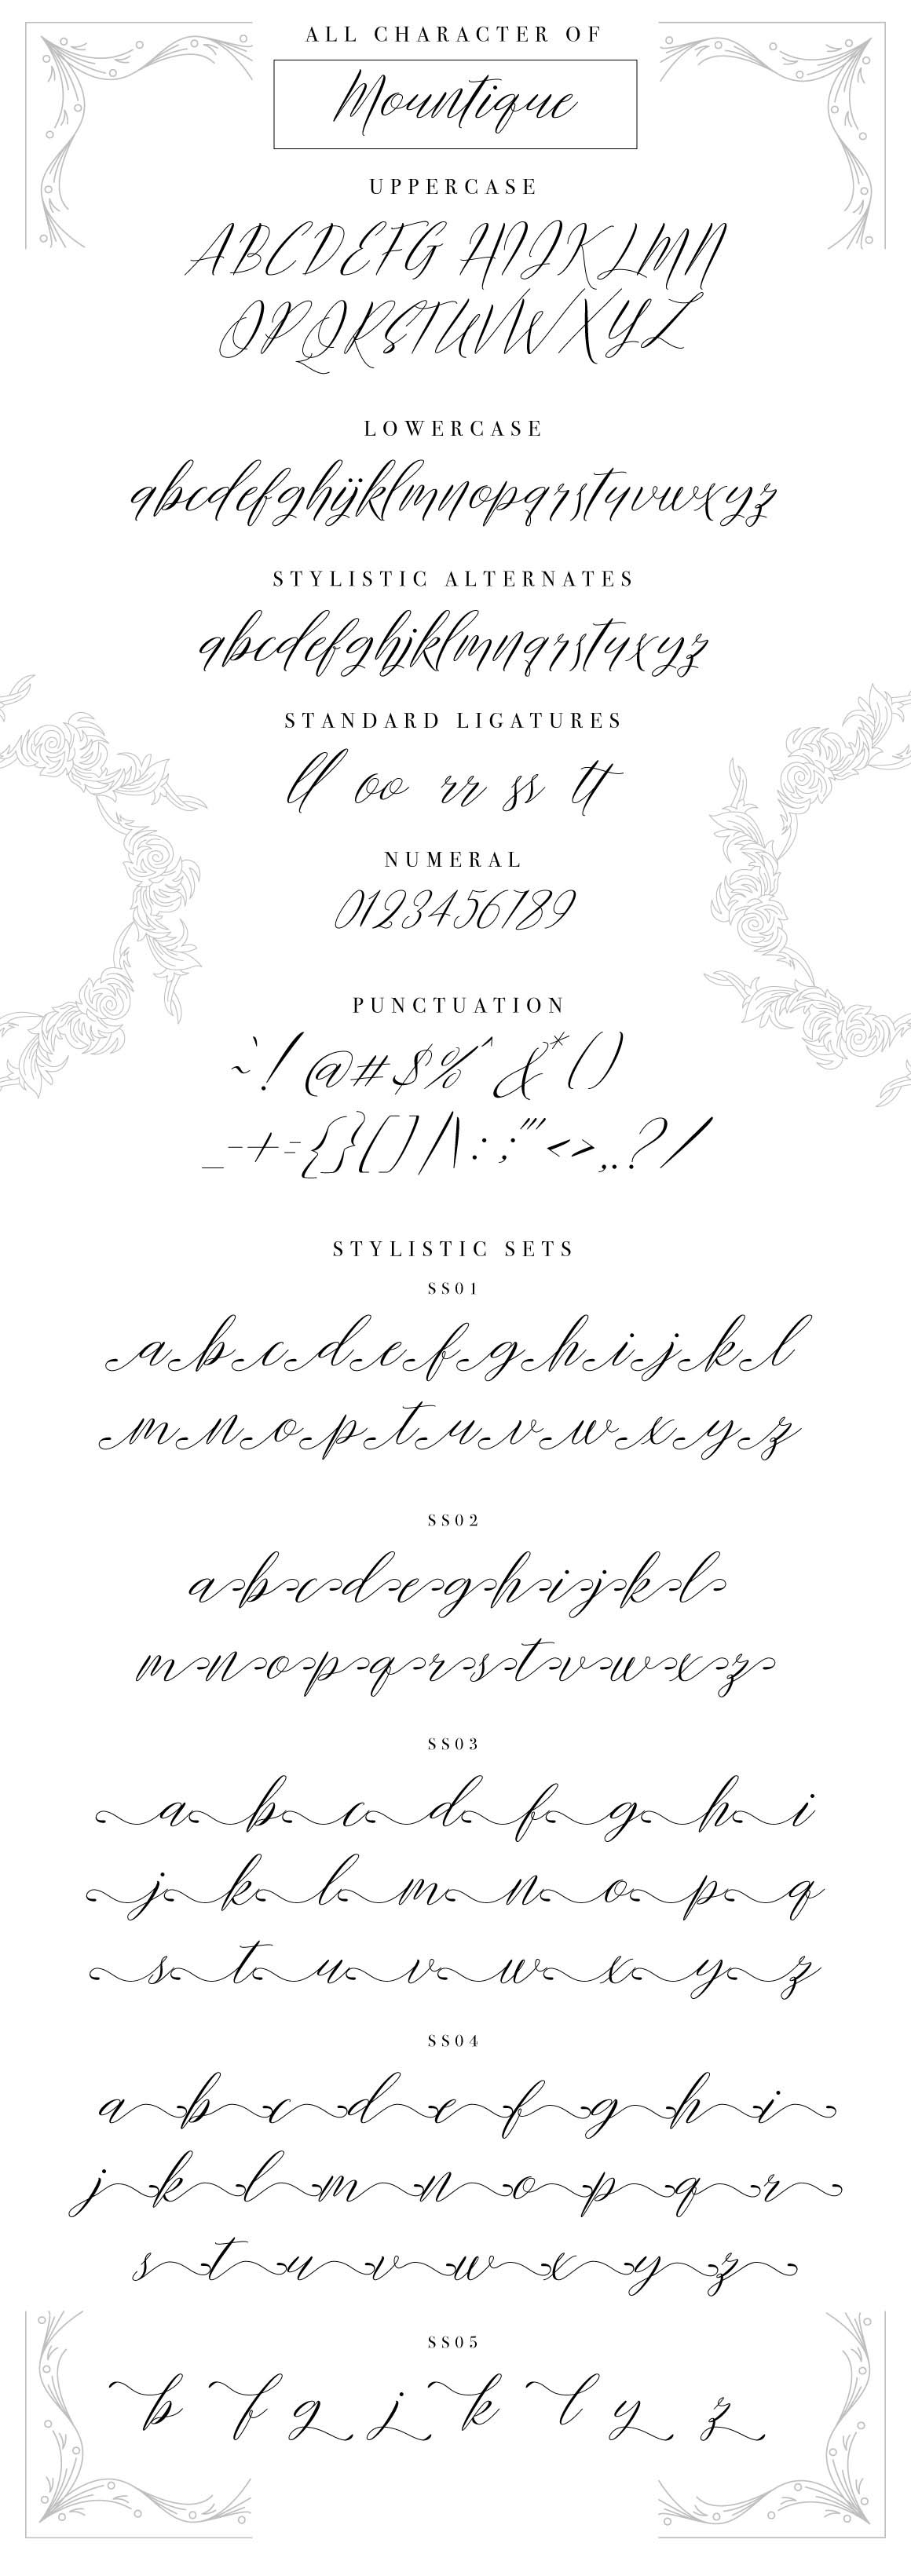 ALL CHARACTER OF
Mountique
UPPERCASE
ABCDEFGHIJKLMN
OPQRSTUVWXYZ
LOWERCASE
abcdefghijklmnopqrstuvwxyz
STYLISTIC ALTERNATES
abcdefghjklmnqrstuxyz
STANDARD LIGATURES
ll oo rr ss tt
NUMERAL
0123456789
PUNCTUATION
`~! @#$%^&*()
_-+={}[]|\:;"'<>,.?/
STYLISTIC SETS
SS01
abcdefghijkl
mnoptuvwxyz
SS02
abcdeghijkl
mnopqrstvwxz
SS03
abcdfghi
jklmnopq
stuvwxyz
SS04
abcdefghi
jklmnopqr
stuvwxyz
SS05
b f g j k l y z